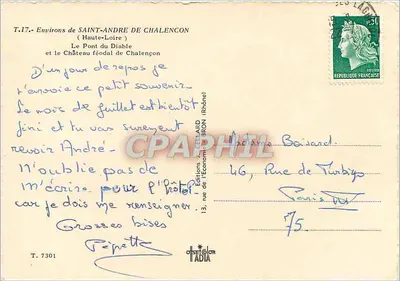 T.17.- Environs de SAINT-ANDRE DE CHALENCON
(Haute-Loire)
Le Pont du Diable
et le Château féodal de Chalençon
D'un jour de repos je
t'envoie ce petit souvenir
Le mois de juillet est bientôt
fini et tu vas surement
revoir André.
N'oublie pas de
m'écrire pour l'hotel
car je dois me renseigner.
Grosses bises
Pépette
T. 7301
Editions
BRON (Rhône)
13, rue de l'Economie
CPAPHIL
0,30
REPUBLIQUE FRANÇAISE
Madame Boisard
46, Rue de Turbigo
Paris III
75.
IADIA